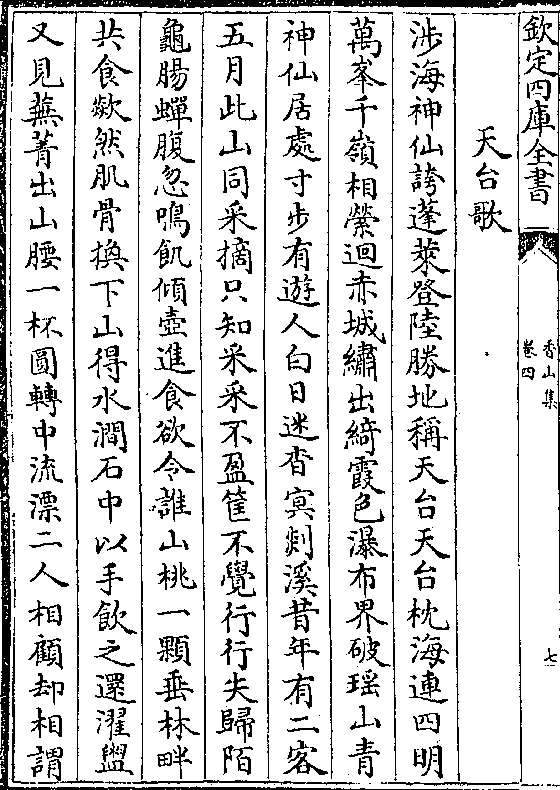 欽定四庫全書
香山集
卷四
七
天台歌
涉海神仙誇蓬萊登陸勝地稱天台天台枕海連四明
萬峯千嶺相縈迴赤城繡出綺霞色瀑布界破瑶山青
神仙居處寸步有遊人白日迷杳㝠剡溪昔年有二客
五月此山同采摘只知采采不盈筐不覺行行失歸陌
龜腸蟬腹忽鳴飢傾壺進食欲令誰山桃一顆垂林畔
共食歘然肌骨換下山得水澗石中以手飲之還濯盥
又見蕪菁出山腰一杯圓轉中流漂二人相顧却相謂